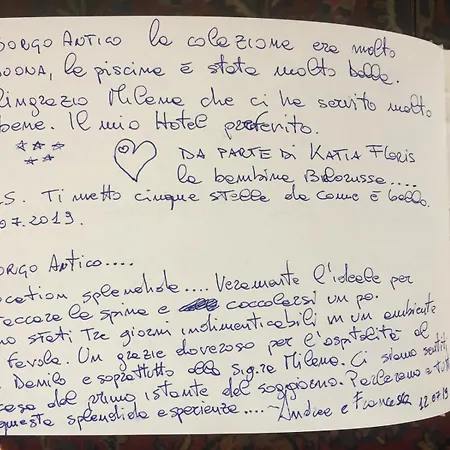 BORGO ANTICO la colazione era molto
BUONA, la piscina è stata molto bella.
Ringrazio Milena che ci ha servito molto
bene. Il mio Hotel preferito.
☆☆☆
☆☆
DA PARTE DI KATIA Floris
la bambina Bielorussa....
P.S. Ti metto cinque stelle da come è bello.
07.2019.
BORGO ANTICO....
location splendida.... Veramente l'ideale per
staccare la spina e coccolarsi un po.
stati Tre giorni indimenticabili in un ambiente
favola. Un grazie doveroso per l'ospitalità al
Danilo e soprattutto alla Sig.ra Milena. Ci siamo sentiti
casa dal primo istante del soggiorno.
questa splendida esperienza.... Andrea e Francesca 12.07.19